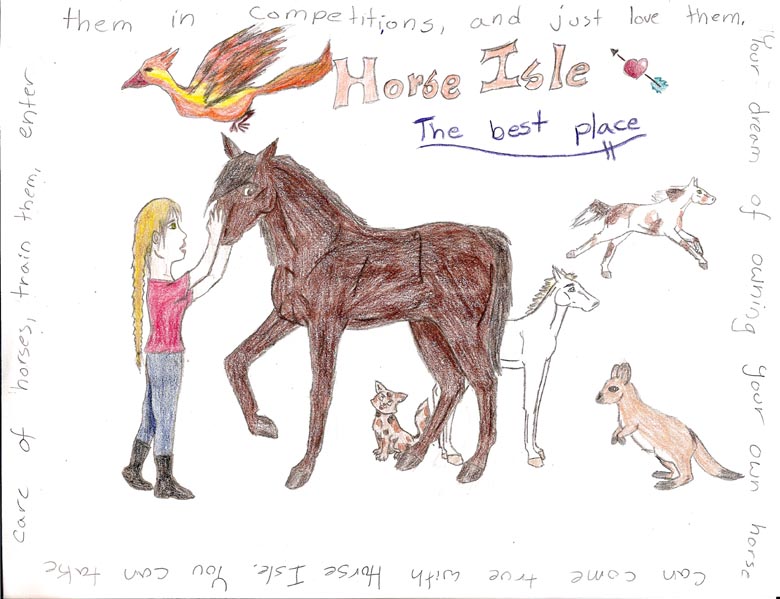 Horse Isle
The best place
Your dream of owning your own horse
can come true with Horse Isle. You can take
care of horses, train them, enter
them in competitions, and just love them.